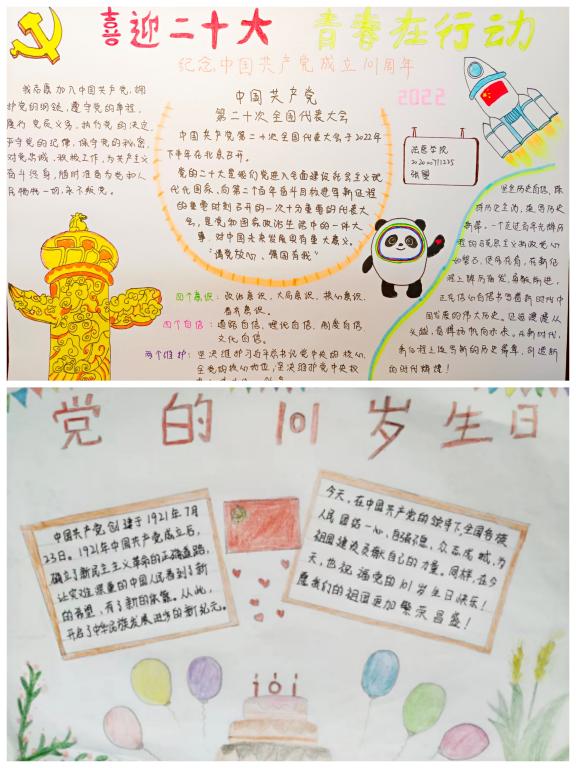 喜迎二十大 青春在行动
纪念中国共产党成立101周年
2022
我志愿加入中国共产党,拥
护党的纲领,遵守党的章程,
履行党员义务,执行党的决定,
严守党的纪律,保守党的秘密,
对党忠诚,积极工作,为共产主义
奋斗终身,随时准备为党和人
民牺牲一切,永不叛党。
中国共产党
第二十次全国代表大会
中国共产党第二十次全国代表大会于2022年
下半年在北京召开。
党的二十大是我们党进入全面建设社会主义现
代化国家、向第二个百年奋斗目标进军新征程
的重要时刻召开的一次十分重要的代表大
会,是党和国家政治生活中的一件大
事,对中国未来发展具有重大意义。
"请党放心、强国有我"
四个意识:政治意识、大局意识、核心意识、
看齐意识。
四个自信:道路自信、理论自信、制度自信
文化自信。
两个维护:坚决维护习近平总书记党中央的核心、
全党的核心地位,坚决维护党中央权
学院
张
坚定历史自信,
历史主动,
国发展的伟大历史。
火越,
的时代辉煌!
党的101岁生日
中国共产党创建于1921年7月
23日。1921年中国共产党成立后,
确立了新民主主义革命的正确道路,
让灾难深重的中国人民看到了新
的希望、有了新的依靠。从此,
开启了中华民族发展进步的新纪元。
今天,在中国共产党的领导下,全国各族
人民团结一心、自强不息、众志成城,为
祖国建设贡献自己的力量。同样,在今
天,也祝福党的101岁生日快乐!
愿我们的祖国更加繁荣昌盛!
101